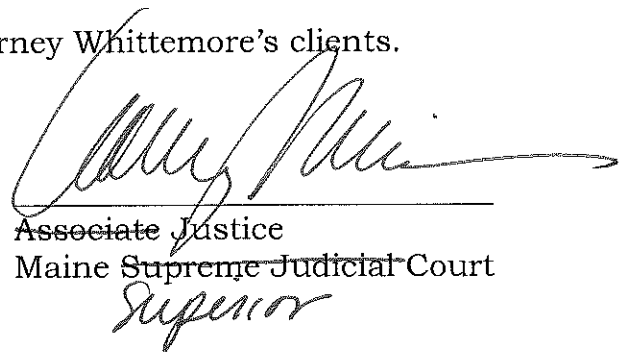 rney Whittemore's clients.
Associate Justice
Maine Supreme Judicial Court
Superior